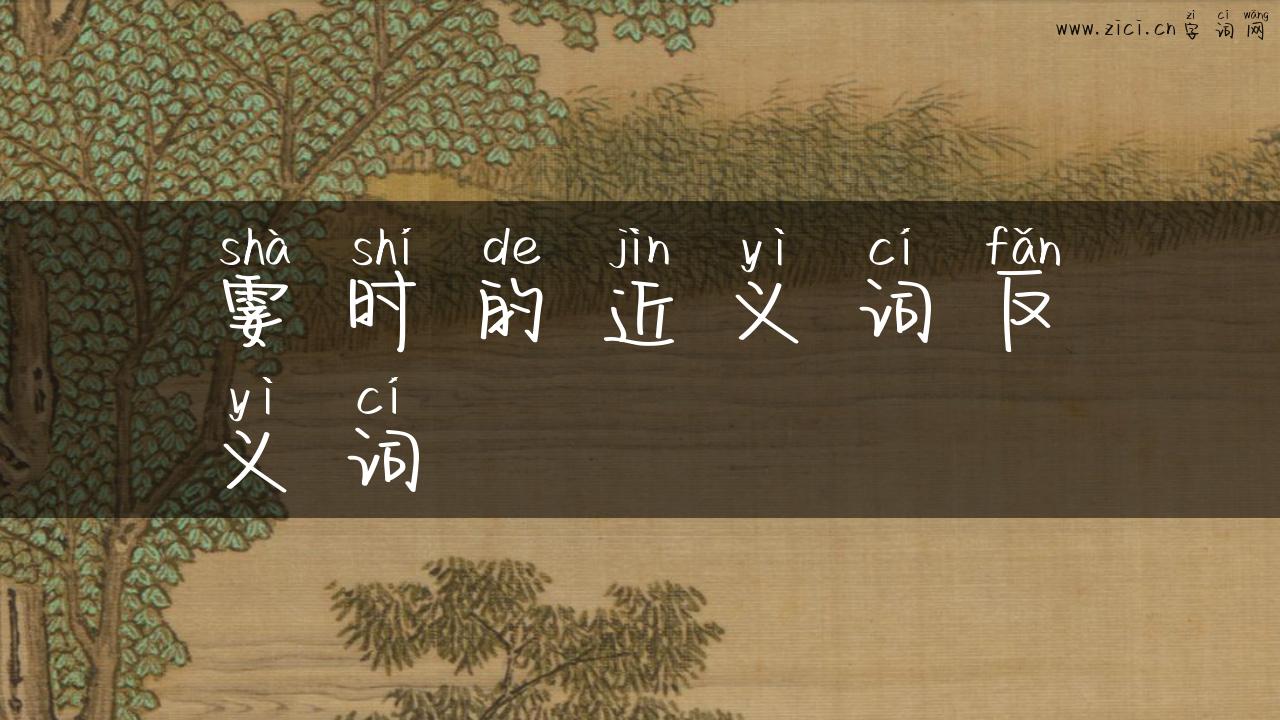 zì cí wǎng
www.zici.cn字词网
shà shí de jìn yì cí fǎn
霎时的近义词反
yì cí
义词